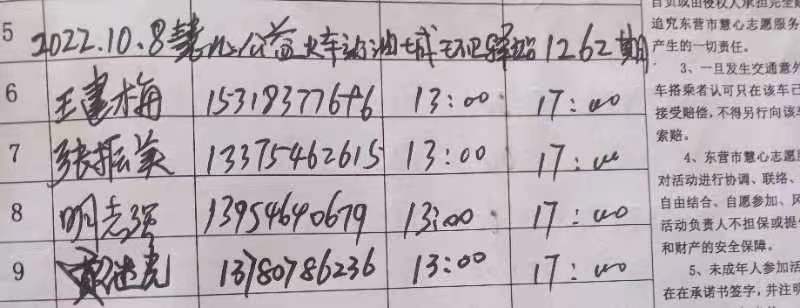 5 2022.10.8慧心公益火车站油城e驿站1262期
6 王建梅 13:00 17:00
7 张振美 13375462615 13:00 17:00
8 明志强 13954640679 13:00 17:00
9 13780786236 13:00 17:00
追究东营市慧心志愿服务
产生的一切责任。
3、一旦发生交通意外
车搭乘者认可只在该车已
接受赔偿，不得另行向该车
索赔。
4、东营市慧心志愿服
对活动进行协调、联络、
自由结合、自愿参加、风
活动负责人不担保或提供
和财产的安全保障。
5、未成年人参加活
在在承诺书签字，并注明